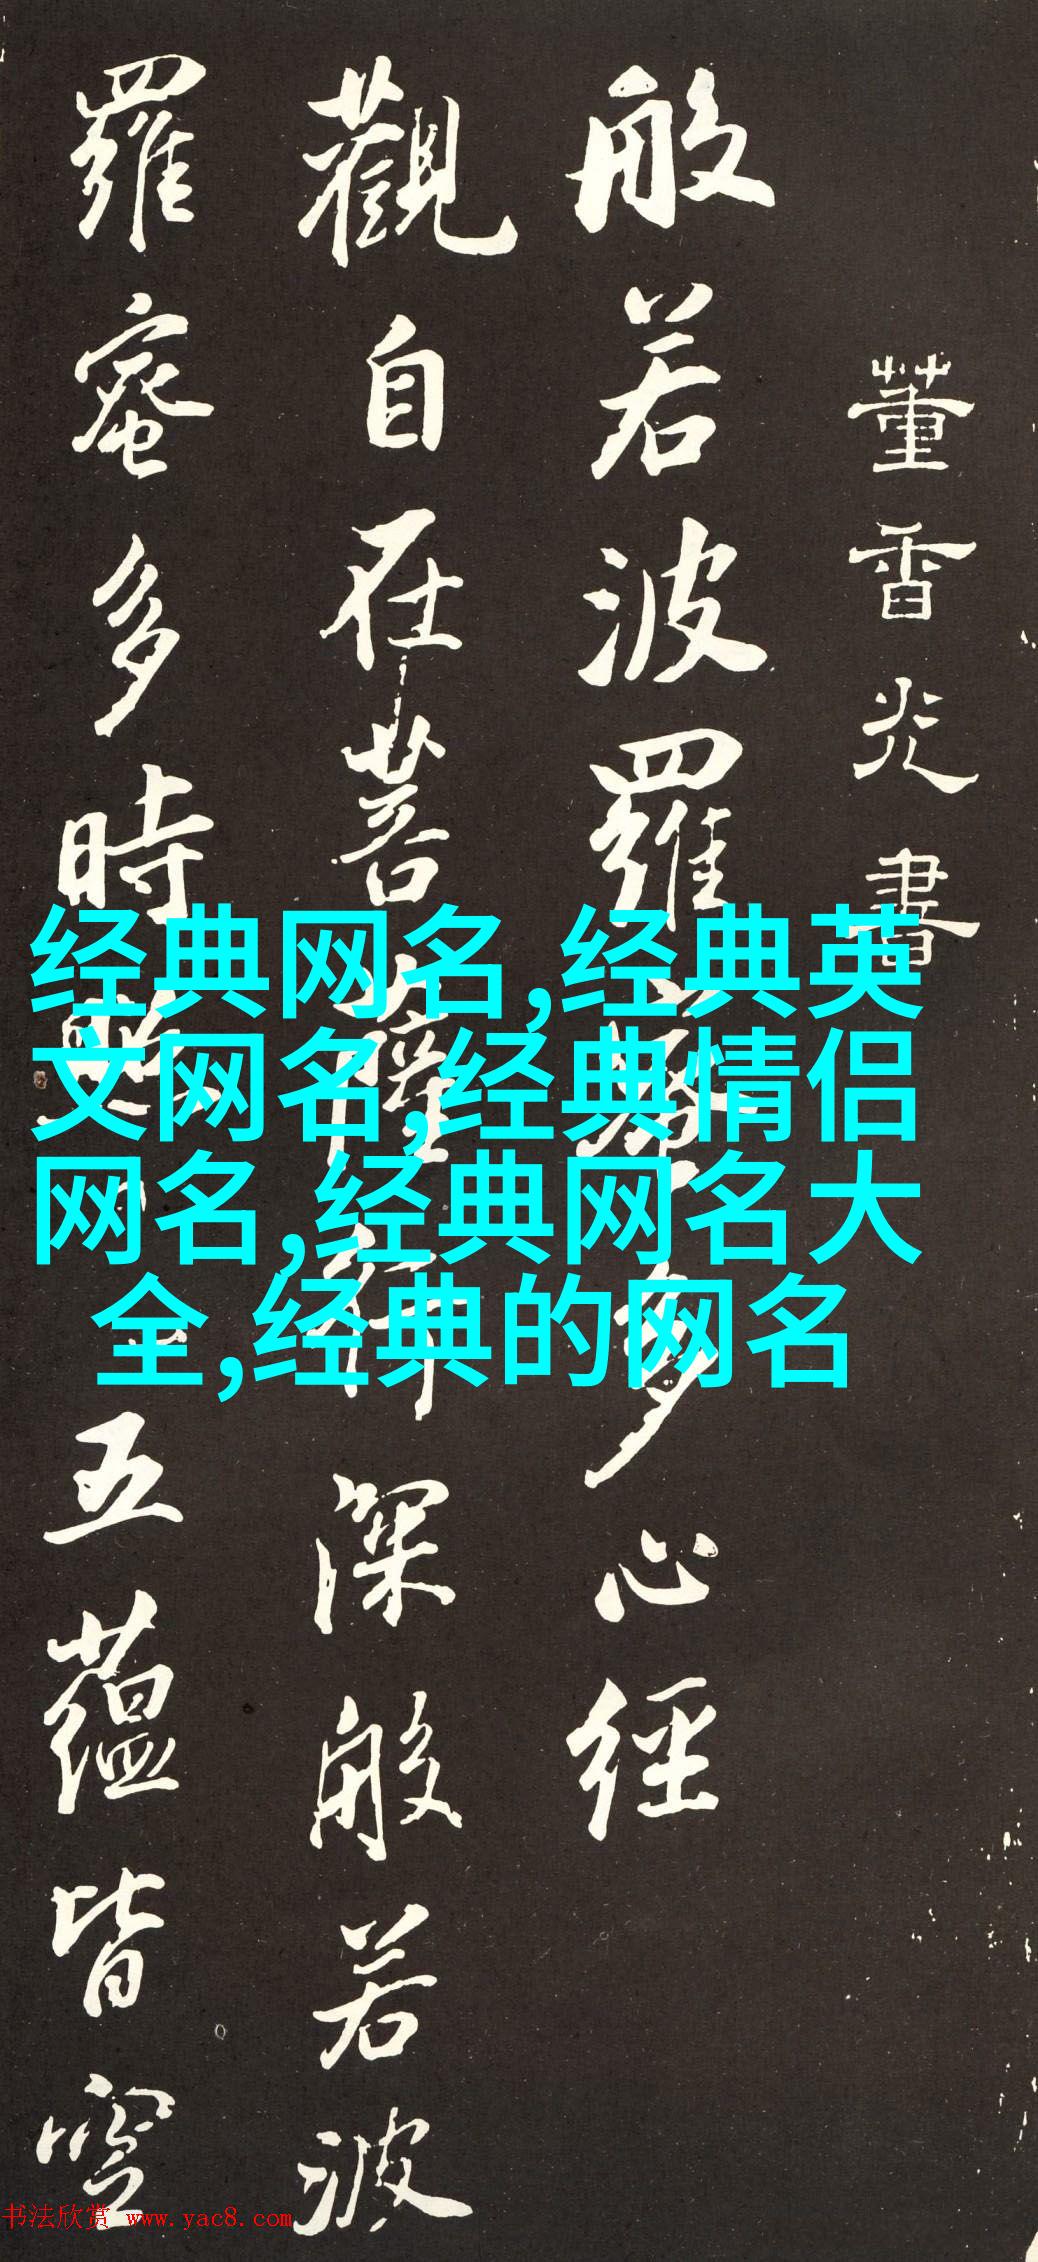 董香光書
般若波羅蜜多心經
觀自在菩薩行深般若波
羅蜜多時照見五蘊皆空
经典网名,经典英
文网名,经典情侣
网名,经典网名大
全,经典的网名
书法欣赏 www.yac8.com